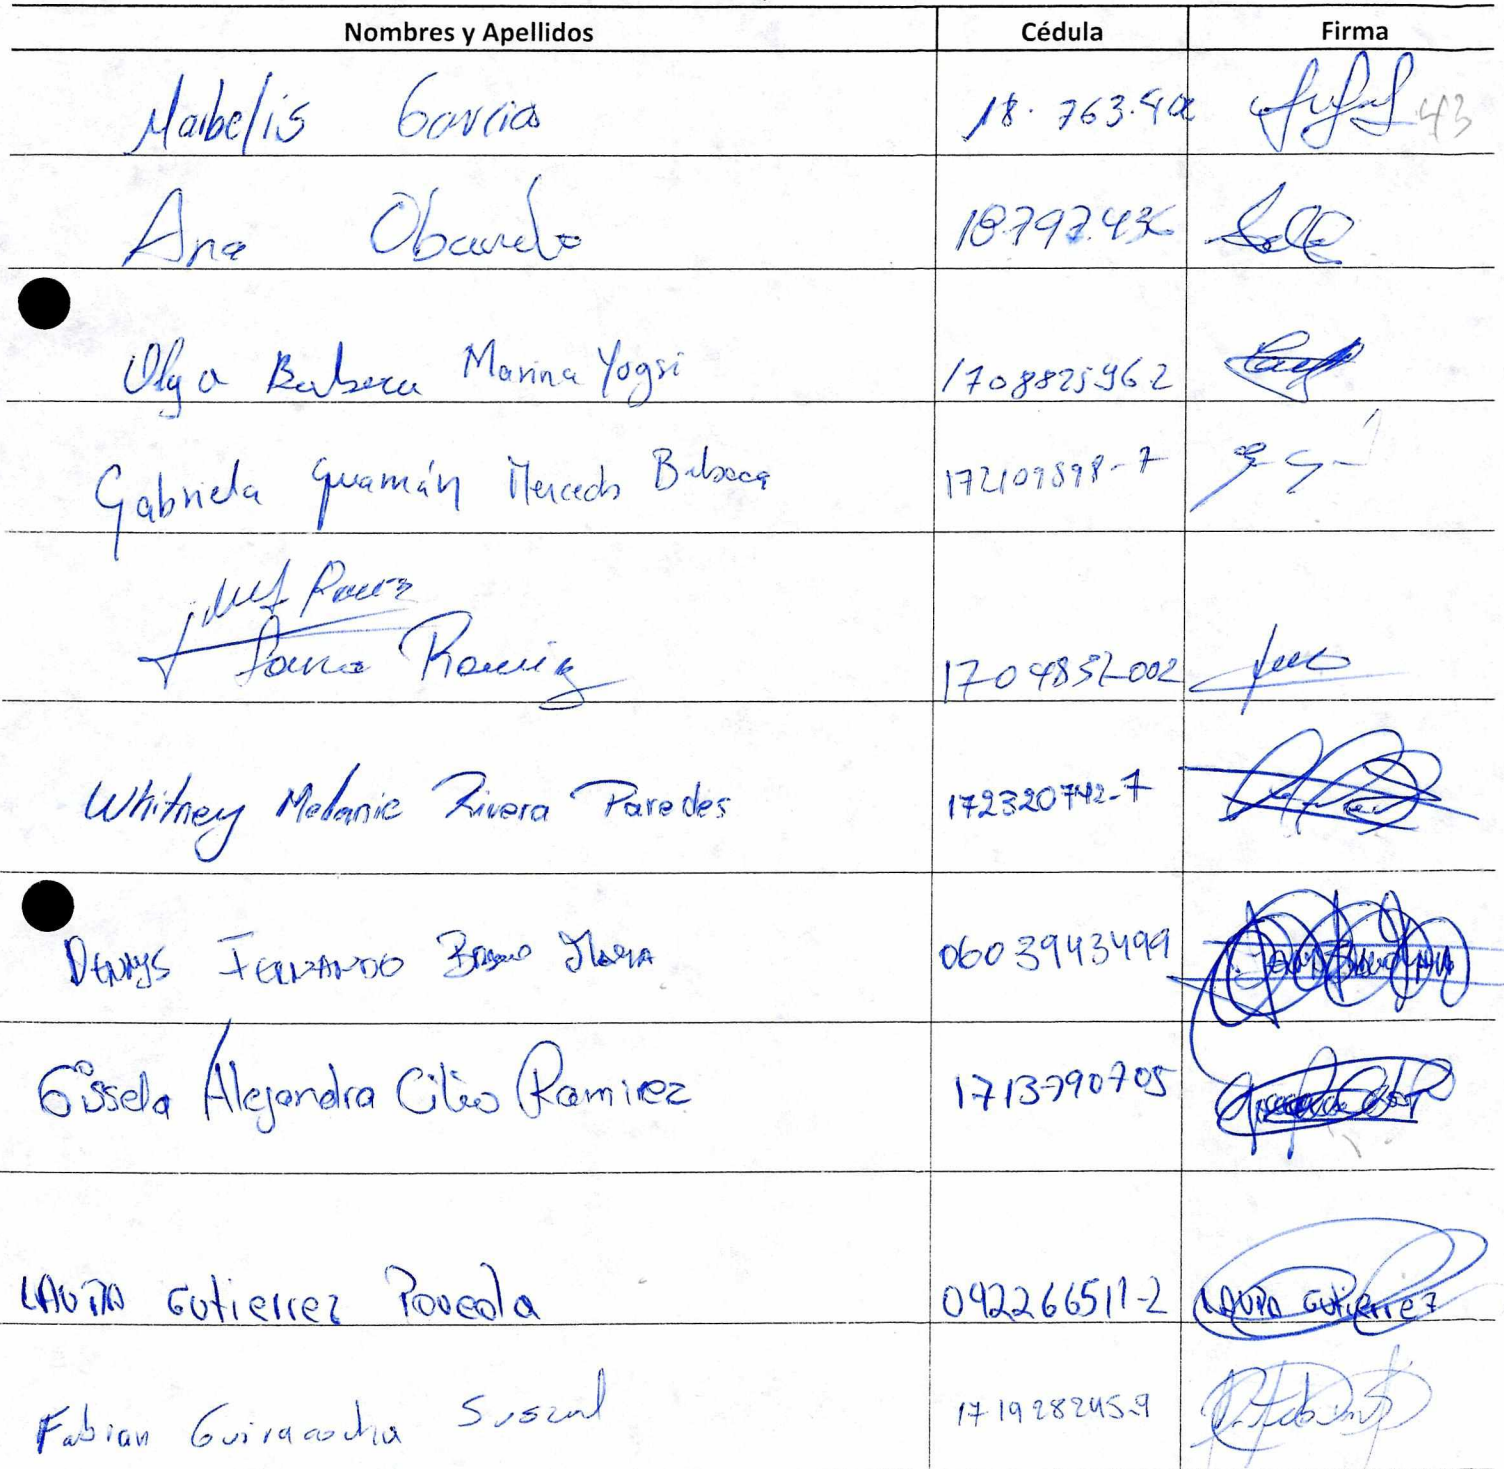 Nombres y Apellidos Cédula Firma
Maibelis Garcia 18.763.4 43
Ana Obando 18797.436
Olga Balseca Marina Yogsi 1708825962
Gabriela Guamán Mercedes Balseca 172109898-7
Ramirez
Whitney Melanie Rivera Paredes 172320742-7
DENNYS FERNANDO 0603943499
Gissela Alejandra Ramirez 1713790705
LAURA Gutierrez Poveda 092266511-2 LAURA Gutierrez
Fabian Guiracocha 171928245-9